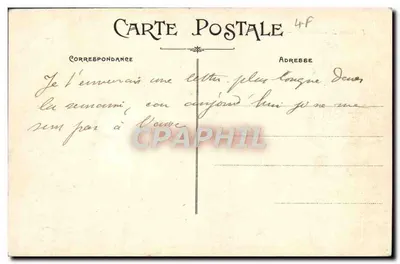 CARTE POSTALE
4F
CORRESPONDANCE
ADRESSE
Je t'enverrais une lettre plus longue dans
la semaine, car aujourd'hui je ne me
sens pas à
CPAPHIL